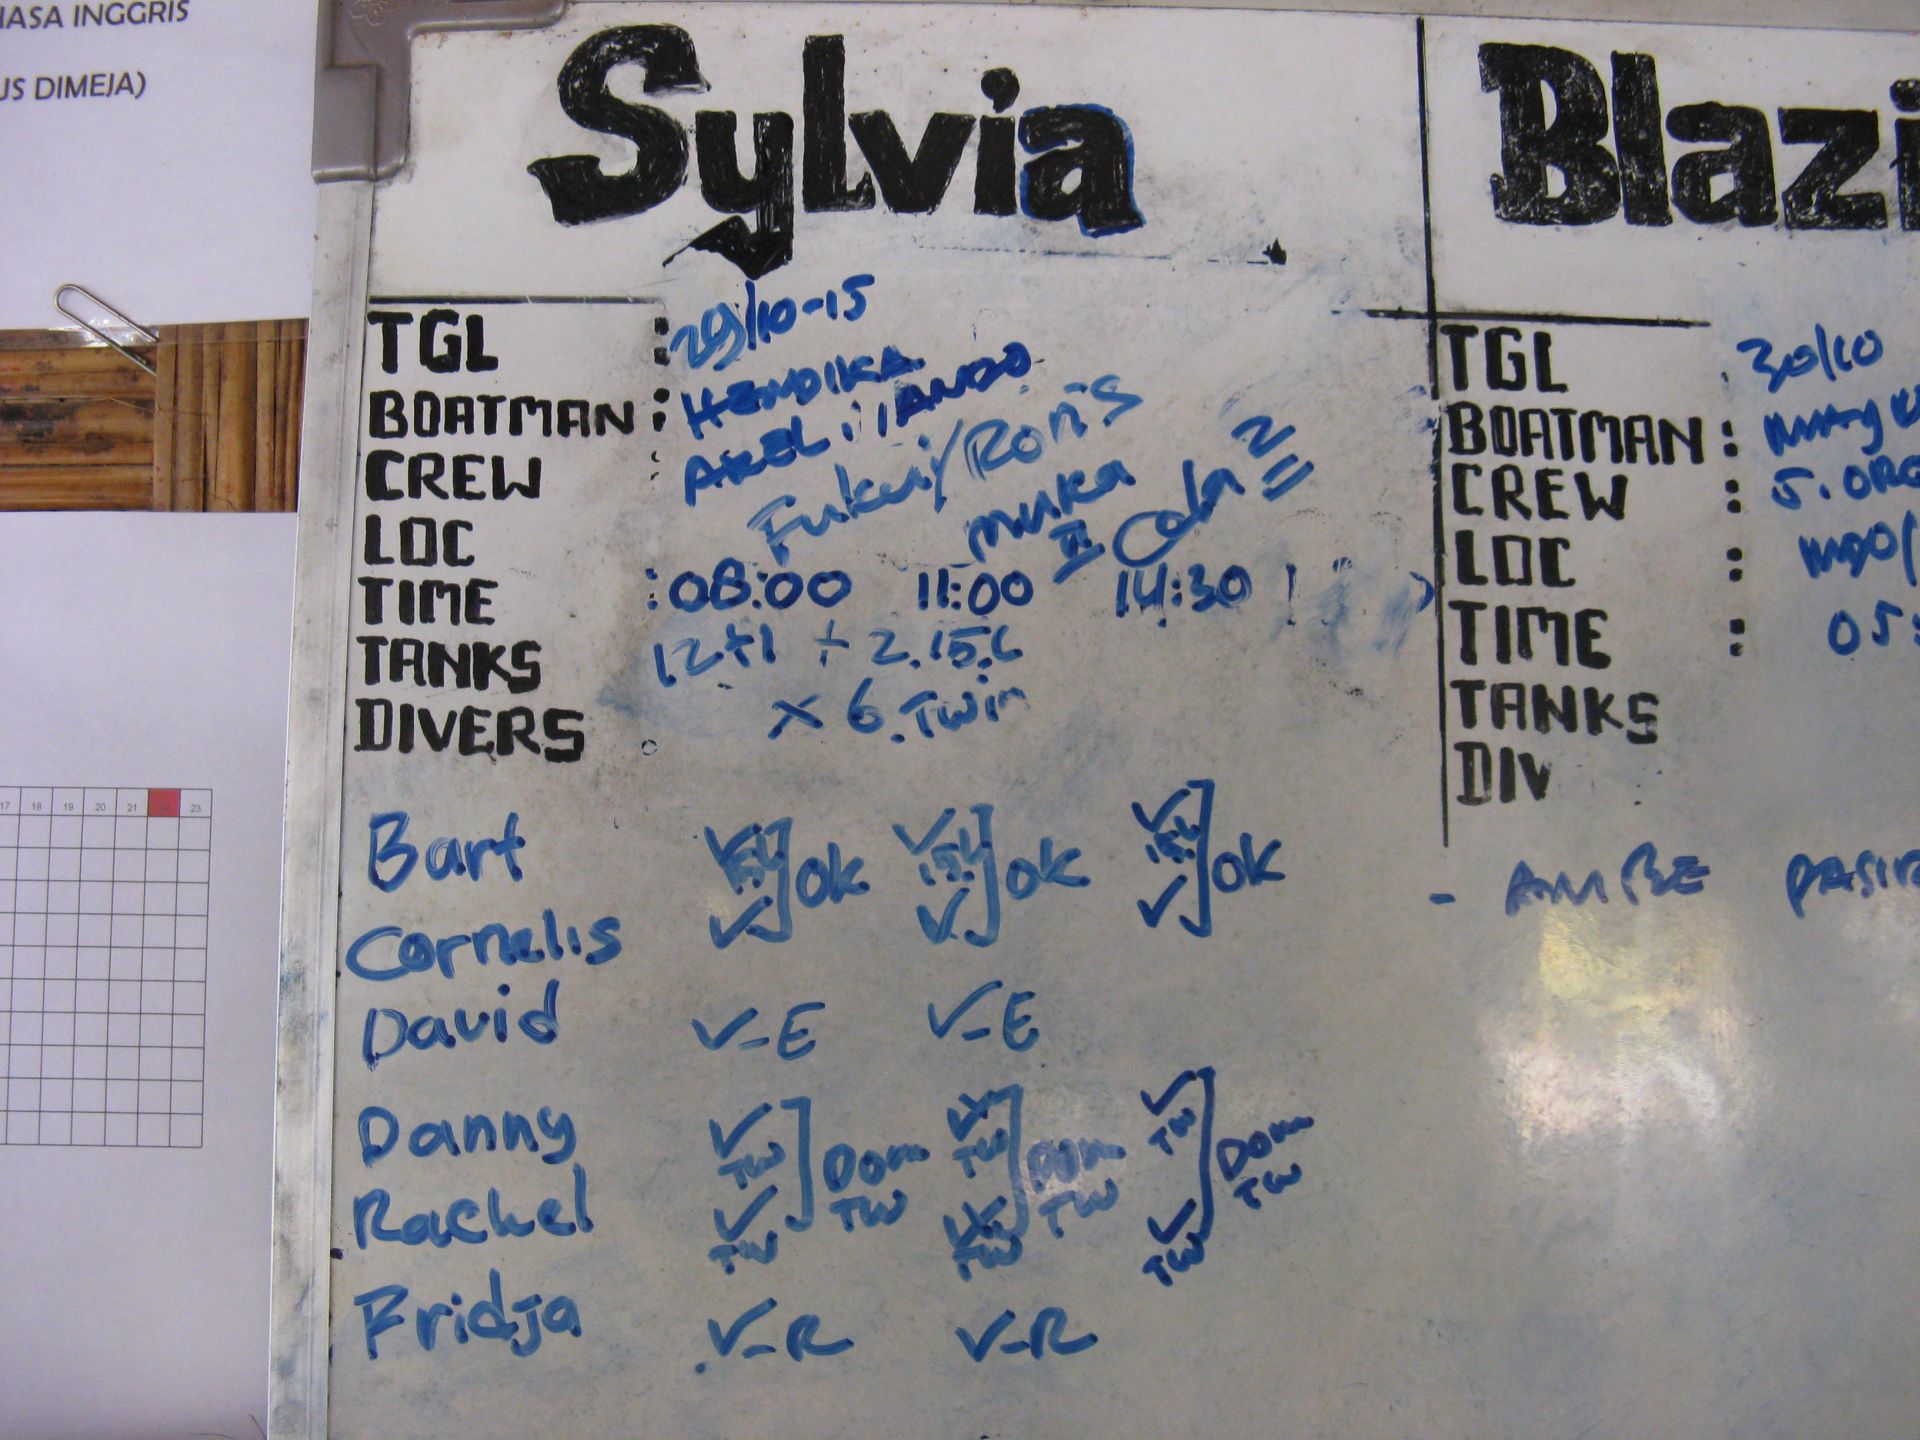 HASA INGGRIS
US DIMEJA)
17 18 19 20 21 23
Sylvia
TGL : 29/10-15
BOATMAN : HENDIKA
CREW :
LOC Fukui/Ron's muka II
TIME : 08:00 11:00 14:30
TANKS 12+1 + 2.15.L
DIVERS x 6.Twin
Bart ✓ 15.L ✓ 15.L ✓ 15.L
OK OK OK
Cornelis ✓ ✓ ✓
David ✓-E ✓-E
Danny ✓ TW ✓ TW ✓ TW
Dom TW Dom TW Dom TW
Rachel ✓ TW ✓ TW ✓ TW
Fridja ✓-R ✓-R
Blazi
TGL 30/10
BOATMAN :
CREW : 5.ORG
LOC :
TIME : 05:
TANKS
DIV